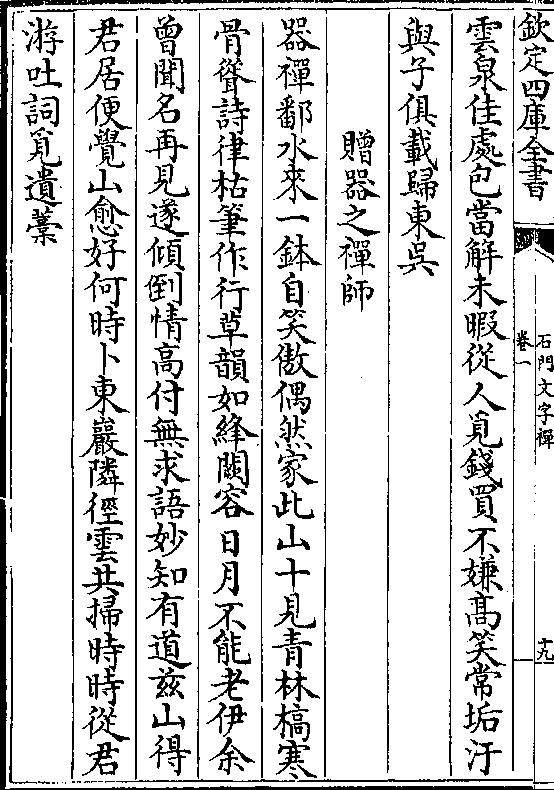 欽定四庫全書
石門文字禪
卷一
十九
雲泉佳處包當解未暇從人覓錢買不嫌髙笑常垢汙
與子俱載歸東吳
贈器之禪師
器禪鄱水來一鉢自笑傲偶然家此山十見青林槁寒
骨聳詩律枯筆作行草韻如絳闕容日月不能老伊余
曾聞名再見遂傾倒情高付無求語妙知有道兹山得
君居便覺山愈好何時卜東巖隣徑雲共掃時時從君
游吐詞覓遺藁